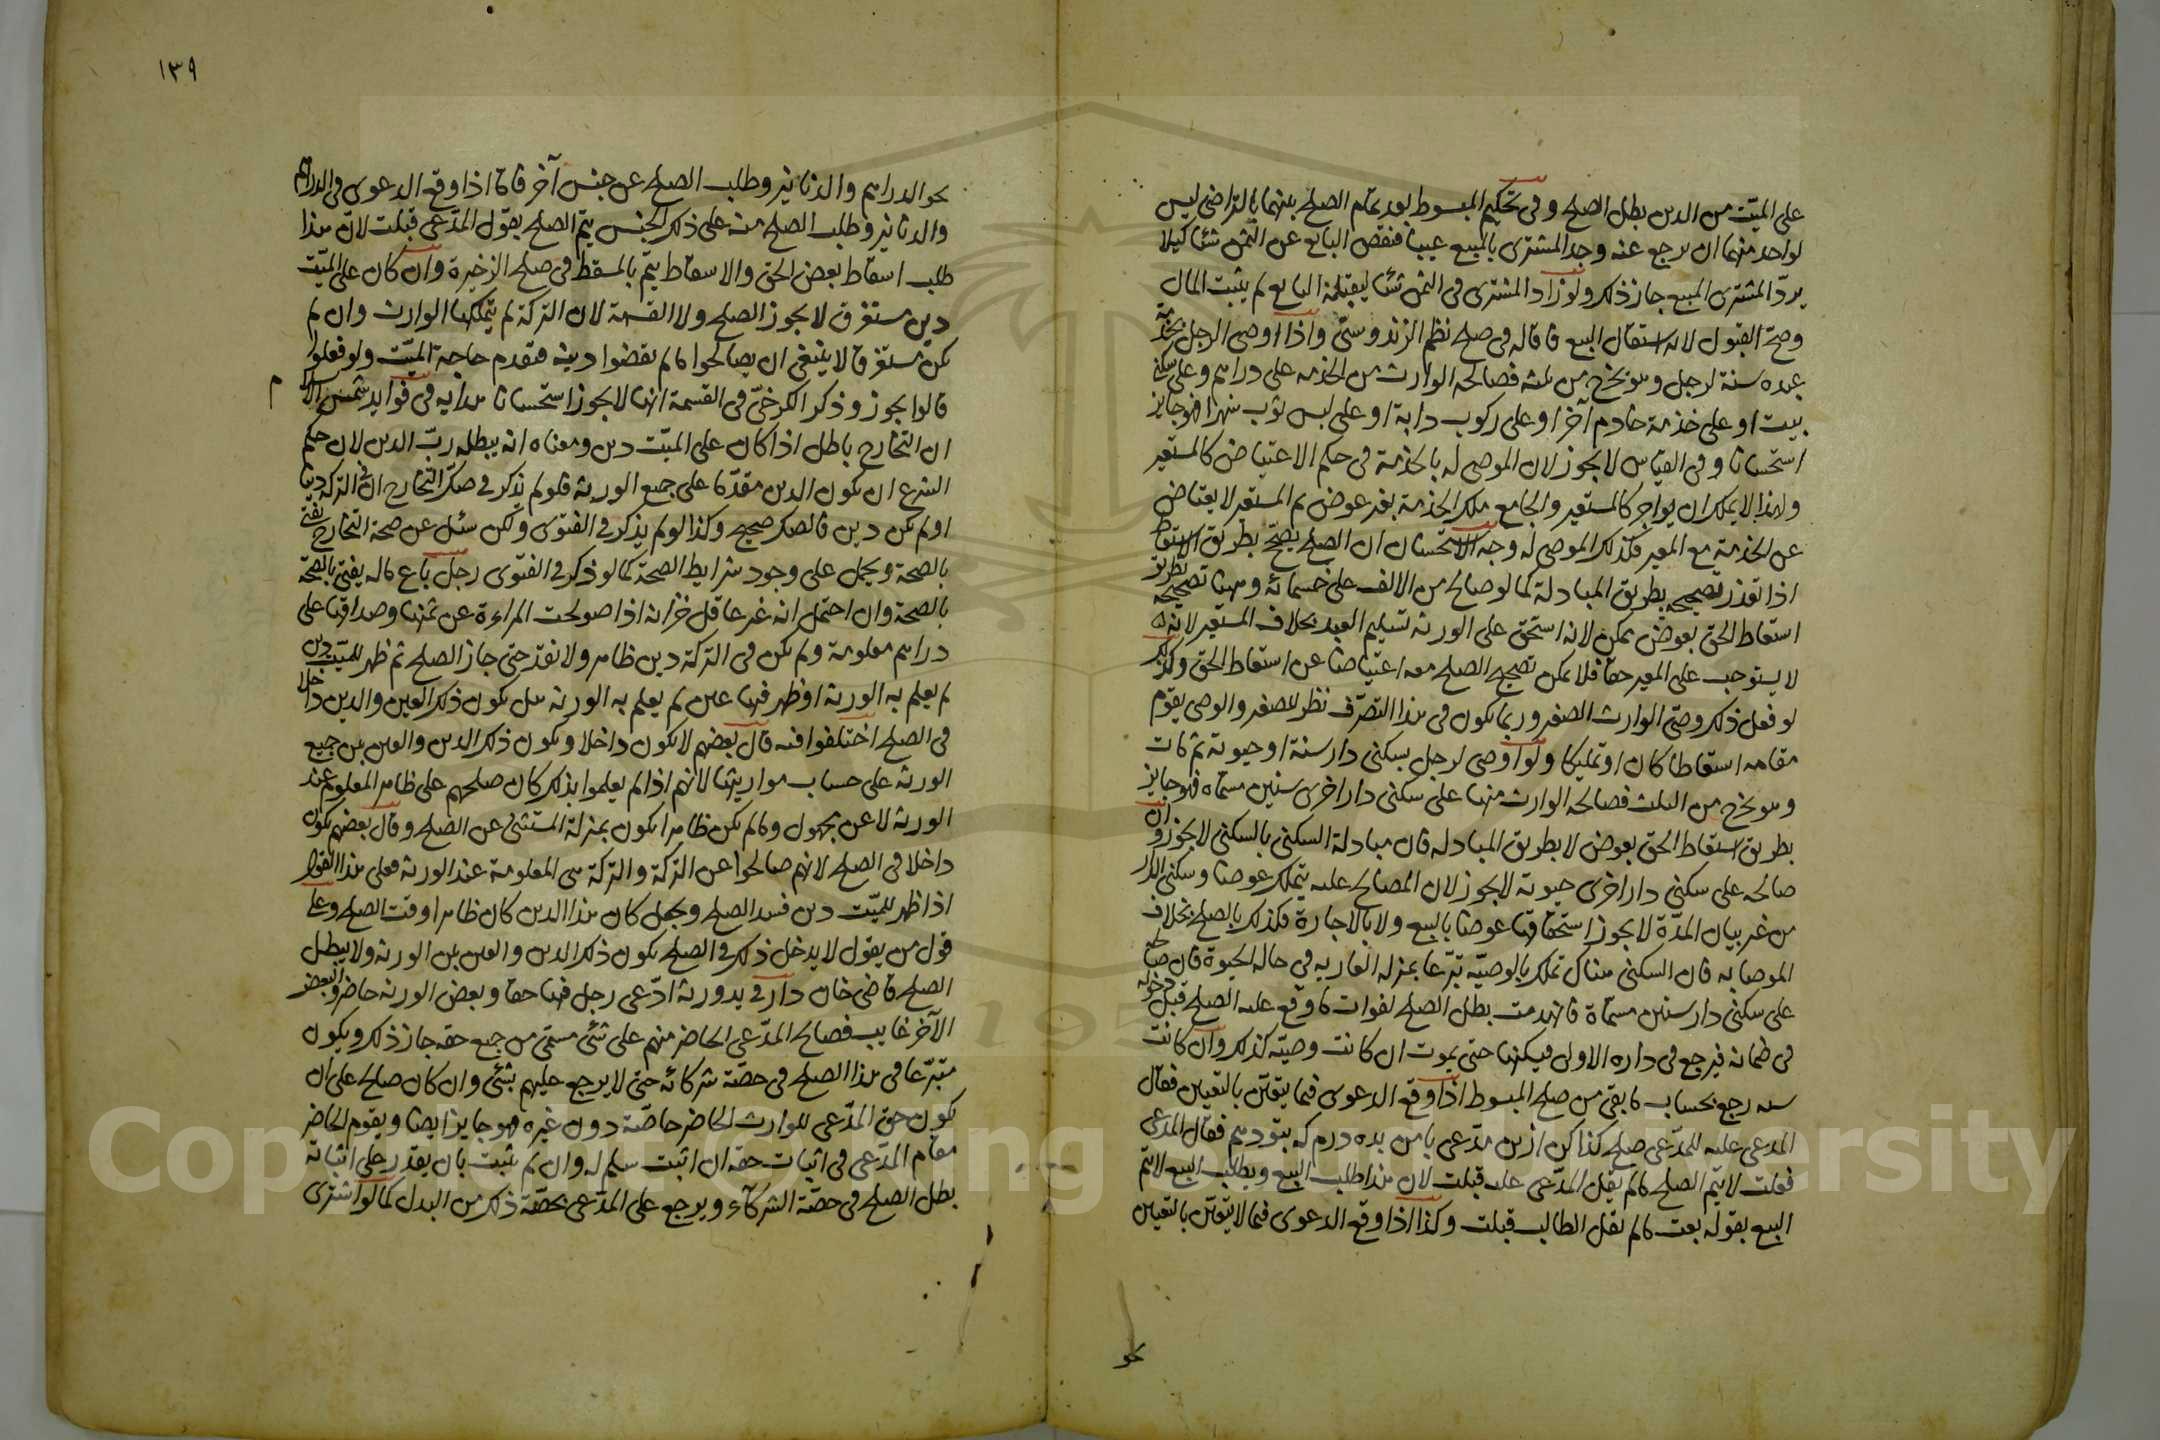 على الميّت من الدين بطل الصلح وفى تحكيم المبسوط بعد تمام الصلح بينهما بالتراضى ليس
لواحد منهما ان يرجع عنه وجد المشترى بالمبيع عيبا فنقص البايع عن الثمن شئا كيلا
يردّ المشترى المبيع جاز ذلك ولو زاد المشترى فى الثمن شئا ليقبله البايع لم يثبت المال
وصحّ القبول لانه استقال البيع قاله فى صلح نظم الزندوستى واذا اوصى الرجل بخدمة
عبده سنة لرجل وهو يخرج من ثلثه فصالحه الوارث من الخدمه على دراهم وعلى سكنى
بيت او على خذمة خادم آخر او على ركوب دابة او على لبس ثوب شهرا فهو جايز
استحسانا وفى القياس لا يجوز لان الموصى له بالخذمة فى حكم الاعتياض كالمستعير
ولهذا لا يملك ان يواجر كالمستعير والجامع ملك الخذمة بغير عوض ثم المستعير لا يعتاض
عن الخذمة مع المعير فكذلك الموصى له وجه الاستحسان ان الصلح يصحّ بطريق الاسقاط
اذا تعذر تصحيحه بطريق المبادلة كما لو صالح من الالف على خمسمائه وههنا تصحيحه بطريق
اسقاط الحق بعوض ممكن لانه استحق على الورثه تسليم العبد بخلاف المستعير لانه
لا يستوجب على المعير حقا فلا يمكن تصحيح الصلح معه اعتياضا عن اسقاط الحق وكذلك
لو فعل ذلك وصىّ الوارث الصغير وربما يكون فى هذا التصرّف نظر للصغير والوصى يقوم
مقامه اسقاطا كان او تمليكا ولو اوصى لرجل بسكنى دار سنة او حيوته ثم مات
وهو يخرج من الثلث فصالحه الوارث منها على سكنى دار اخرى سنين مسماه فهو جايز
بطريق اسقاط الحق بعوض لا بطريق المبادله فان مبادلة السكنى بالسكنى لا يجوز وان
صالحه على سكنى دار اخرى حيوته لا يجوز لان المصالح عليه يتملك عوضا وسكنى الدار
من غير بيان المدّة لا يجوز استحقاقها عوضا بالبيع ولا بالاجارة فكذلك بالصلح بخلاف
الموصا به فان السكنى هناك تملك بالوصيّه تبرّعا بمنزله العاريه فى حاله الحيوة فان صالحه
على سكنى دار سنين مسمّاة فانهدمت بطل الصلح لفوات ما وقع عليه الصلح قبل دخوله
فى ضمانه فيرجع فى داره الاولى فيسكنها حتى يموت ان كانت وصيّته كذلك وان كانت
سنه رجع بحساب ما بقى من صلح المبسوط اذا وقع الدعوى فيما يتعيّن بالتعيين فقال
المدعى عليه للمدّعى صلح كذا كن ازين مدّعى با من بده درم كه بتو دهم فقال المدعى
فعلت لا يتم الصلح ما لم يقل المدّعى عليه قبلت لان هذا طلب البيع وبطلب البيع لا يتم
البيع بقوله بعت ما لم يقل الطالب قبلت وكذا اذا وقع الدعوى فيما لا يتعيّن بالتعيين
نحو
١٣٩
نحو الدراهم والدنانير وطلب الصلح عن جنس آخر فاما اذا وقع الدعوى فى الدراهم
والدنانير وطلب الصلح منه على ذلك الجنس يتم الصلح بقول المدّعى قبلت لانّ هذا
طلب اسقاط بعض الحق والاسقاط يتم بالمسقط فى صلح الذخيرة وان كان على الميّت
دين مستغرق لا يجوز الصلح ولا القسمة لان التركة لم يتملكها الوارث وان لم
يكن مستغرقا لا ينبغى ان يصالحوا ما لم يقضوا دينه فتقدم حاجة الميّت ولو فعلوا
قالوا يجوز وذكر الكرخىّ فى القسمة انها لا يجوز استحسانا هدايه فى فوايد شمس الا
م
ان التخارج باطل اذا كان على الميّت دين ومعناه انه يبطله ربّ الدين لان حكم
الشرع ان يكون الدين مقدّما على جميع الورثة فلو لم يذكر فى صكّ التخارج ان فى التركه دينا
او لم يكن دين فالصك صحيح وكذا لو لم يذكر فى الفتوى ولكن سئل عن صحة التخارج يفتى
بالصحة ويحمل على وجود شرايط الصحة كما لو ذكر فى الفتوى رجل باع ماله يفتى بالصحّة
بالصحة وان احتمل انه غير عاقل خزانه اذا صولحت المراءة عن ثمنها وصداقها على
دراهم معلومة ولم يكن فى التركة دين ظاهر ولا نقد حتى جاز الصلح ثم ظهر للميّت دين
لم يعلم به الورثة او ظهر فيها عين لم يعلم به الورثه هل يكون ذلك العين والدين داخلا
فى الصلح اختلفوا فيه قال بعضهم لا يكون داخلا ويكون ذلك الدين والعين بين جميع
الورثه على حساب مواريثها لانهم اذا لم يعلموا بذلك كان صلحهم على ظاهر المعلوم عند
الورثه لا عن مجهول وما لم يكن ظاهرا يكون بمنزلة المستثنى عن الصلح وقال بعضهم يكون
داخلا فى الصلح لانهم صالحوا عن التركة والتركة هى المعلومة عند الورثه فعلى هذا القول
اذا ظهر للميّت دين فسد الصلح ويجعل كان هذا الدين كان ظاهرا وقت الصلح وعلى
قول من يقول لا يدخل ذلك فى الصلح يكون ذلك الدين والعين بين الورثه ولا يبطل
الصلح قاضى خان دار فى يد ورثة ادّعى رجل فيها حقا وبعض الورثه حاضر والبعض
الآخر غايب فصالح المدّعى الحاضر منهم على شئ مسمّى من جميع حقه جاز ذلك ويكون
متبرّعا فى هذا الصلح فى حصّة شركائه حتى لا يرجع عليهم بشئ وان كان صالح على ان
يكون حق المدّعى للوارث الحاضر خاصّة دون غيره فهو جايز ايضا ويقوم الحاضر
مقام المدّعى فى اثبات حقه ان اثبت سلم له وان لم يثبت بان يقدر على اثباته
بطل الصلح فى حصّة الشركآء ويرجع على المدّعى بحصّة ذلك من البدل كما لو اشترى
Copyright © King Saud University